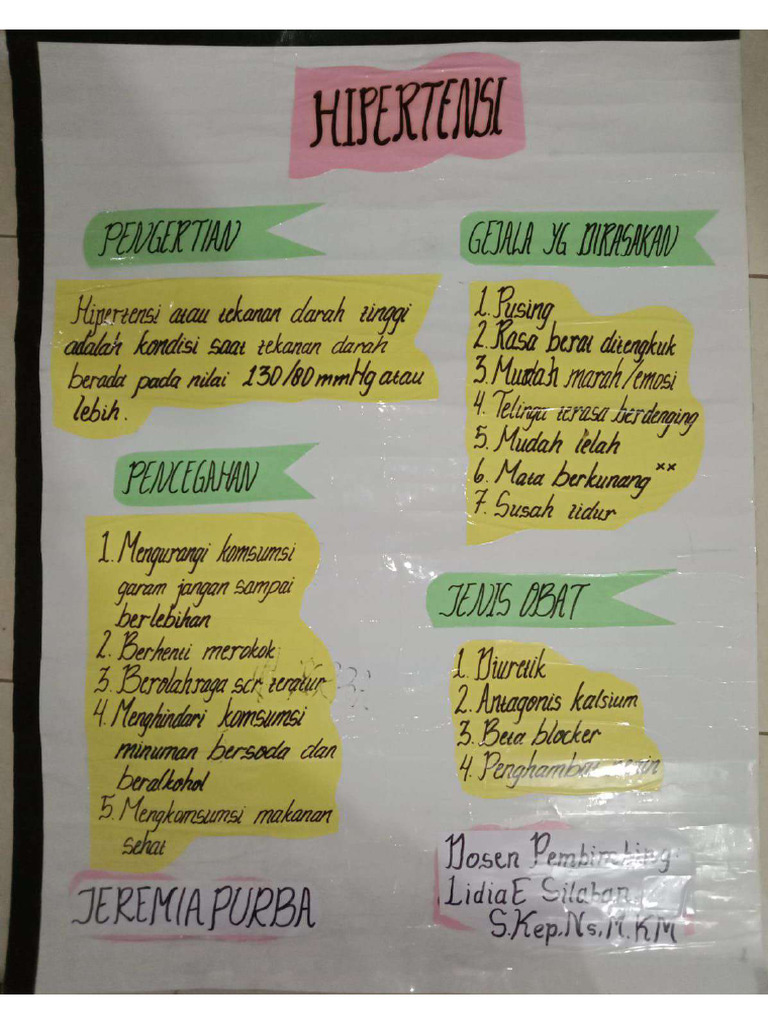 HIPERTENSI
PENGERTIAN
Hipertensi atau tekanan darah tinggi
adalah kondisi saat tekanan darah
berada pada nilai 130/80 mmHg atau
lebih.
PENCEGAHAN
1. Mengurangi komsumsi
garam jangan sampai
berlebihan
2. Berhenti merokok
3. Berolahraga scr teratur
4. Menghindari komsumsi
minuman bersoda dan
beralkohol
5. Mengkomsumsi makanan
sehat
JEREMIA PURBA
GEJALA YG DIRASAKAN
1. Pusing
2. Rasa berat ditengkuk
3. Mudah marah/emosi
4. Telinga terasa berdenging
5. Mudah lelah
6. Mata berkunang××
7. Susah tidur
JENIS OBAT
1. Diuretik
2. Antagonis kalsium
3. Beta blocker
4. Penghambat renin
Dosen Pembimbing
Lidia E Silaban
S.Kep,Ns,M.KM